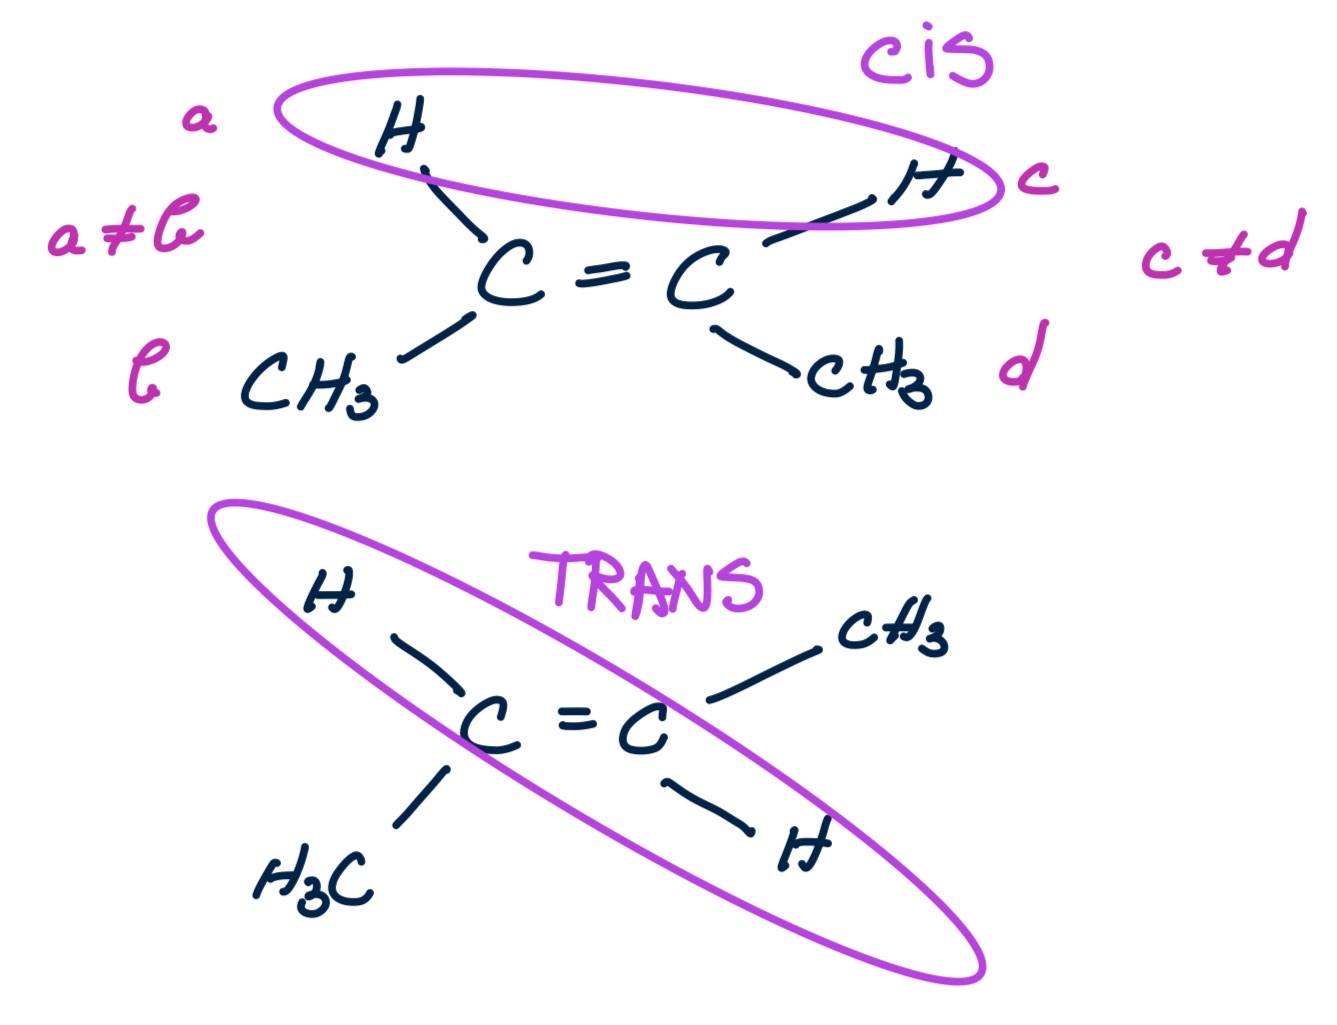 cis
a H H c
a ≠ b c ≠ d
C = C
b CH3 CH3 d
TRANS
H CH3
C = C
H3C H